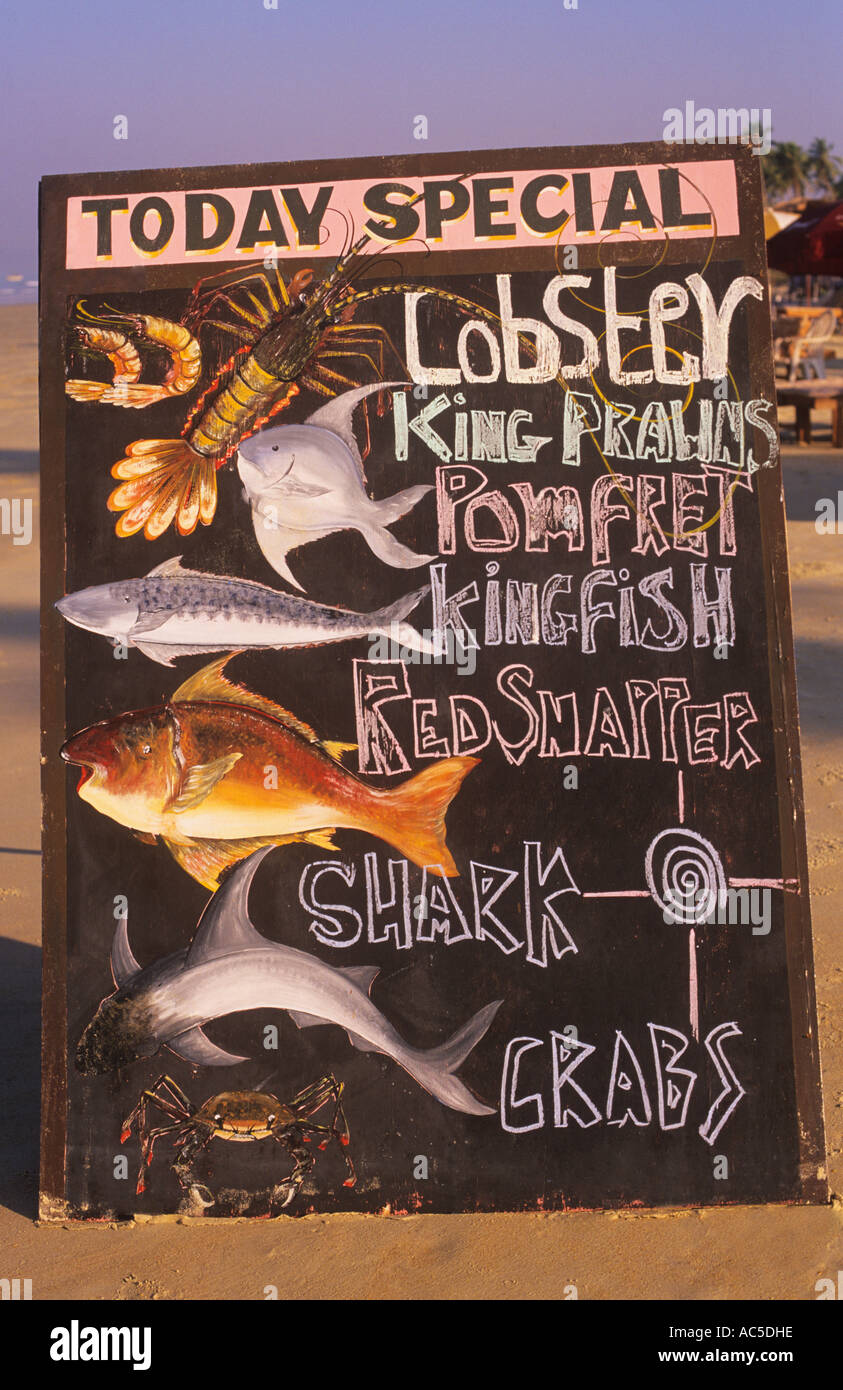 TODAY SPECIAL
Lobster
KING PRAWNS
POMFRET
KINGFISH
RED SNAPPER
SHARK
CRABS
alamy
Image ID: AC5DHE
www.alamy.com